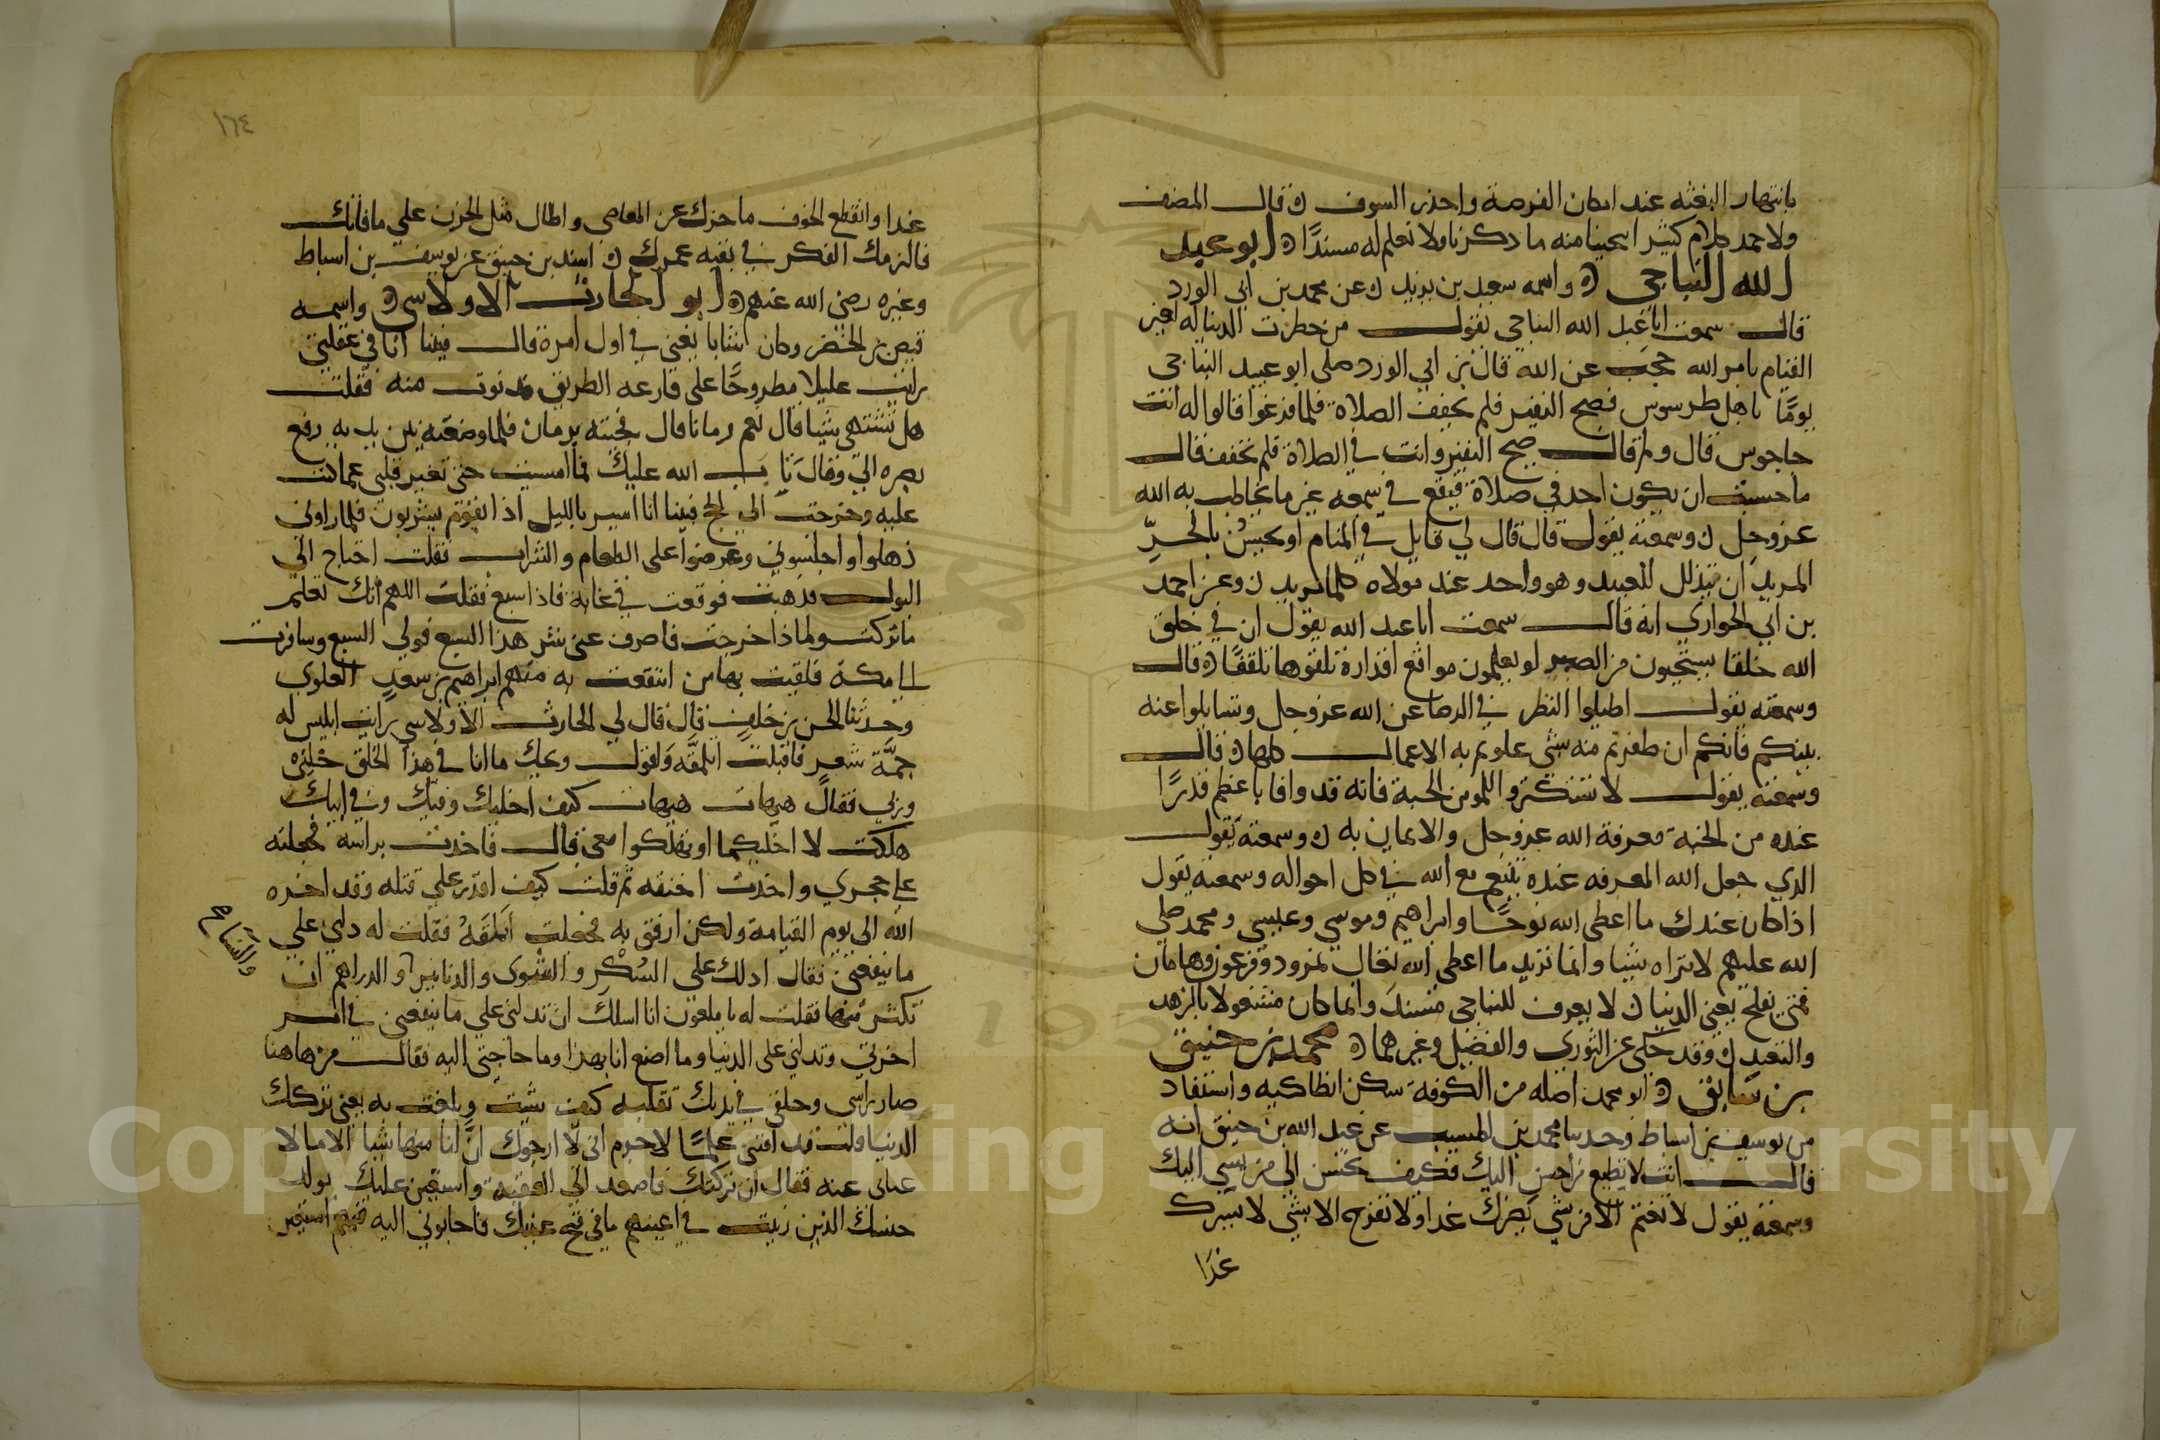 بانتهار البغته عند امكان الفرصة واحذر السوف ن قال المصنف
ولاحمد كلام كثير انتخبنا منه ما ذكرنا ولا نعلم له مسندًا ه ابو عبد
الله النباجي ه واسمه سعيد بن يزيد ن عن محمد بن ابي الورد
قال سمعت ابا عبد الله النباجي يقول من خطرت الدنيا له لغير
القيام بامر الله حجب عن الله قال بن ابي الورد صلى ابو عبد النباجي
يومًا باهل طرسوس فصيح النفير فلم يخفف الصلاة فلما فرغوا قالوا له انت
جاجوس قال ولم قال صيح النفير وانت في الصلاة فلم تخفف قال
ما حسبت ان يكون احد في صلاة فيقع في سمعه غير ما يخاطب به الله
عز وجل ن وسمعته يقول قال قال لي قايل في المنام او يحسن بالحر
المريد ان يتذلل للعبيد وهو واحد عند مولاه كلما يريد ن وعن احمد
بن ابي الحواري انه قال سمعت ابا عبد الله يقول ان في خلق
الله خلقا يستحيون من الصبر لو يعلمون مواقع اقداره تلقوها تلقفًا ه قال
وسمعته يقول اطيلوا النظر في الرضا عن الله عز وجل وتسايلوا عنه
بينكم فانكم ان ظفرتم منه بشي علوتم به الاعمال كلها ه قال
وسمعته يقول لا تستكثروا للمومن الجنة فانه قد وافا باعظم قدرًا
عنده من الجنة معرفة الله عز وجل والايمان به ن وسمعته يقول
الذي جعل الله المعرفه عنده يتنعم مع الله في كل احواله وسمعته يقول
اذا كان عندك ما اعطى الله نوحًا وابراهيم وموسى وعيسى ومحمد صلى
الله عليهم لا تراه شيا وانما تريد ما اعطى الله تعالى نمرود وفرعون وهامان
فمتى تفلح يعني الدنيا ن لا يعرف للنباجي مسند وانما كان مشغولا بالزهد
والتعبد ن وقد حكى عن الثوري والفضيل وغيرهما ه محمد بن خبيق
بن سابق ه ابو محمد اصله من الكوفة سكن انطاكيه واستفاد
من يوسف بن اسباط وحدثنا محمد بن المسيب عن عبد الله بن خبيق انه
قال انت لا تطيع من احسن اليك فكيف تحسن الى من يسي اليك
وسمعته يقول لا تغتم الا من شي يضرك غدا ولا تفرح الا بشي لا يسرك
غدًا
١٦٤
غدا وانقطع الخوف ما حزك عن المعاصي واطال مثل الحزن علي ما فاتك
فالزمك الفكر في بقيه عمرك ن اسند بن خبيق عن يوسف بن اسباط
وغيره رضي الله عنهم ه ابو الحارث الاولاسي ه واسمه
فيض بن الخضر وكان انتابا يغني في اول امره قال فبينا انا في غفلتي
رايت عليلا مطروحًا على قارعه الطريق فدنوت منه فقلت
هل تشتهي شيا قال نعم رمانا قال فجئته برمان فلما وضعته بين يديه رفع
بصره الي وقال تاب الله عليك فما امسيت حتى تغير قلبي عما كنت
عليه وخرجت الى الحج فبينا انا اسير بالليل اذا بقوم يشربون فلما راوني
ذهلوا واجلسوني وعرضوا على الطعام والشراب فقلت احتاج الى
البول فذهبت فوقعت في غابة فاذا سبع فقلت اللهم انك تعلم
ما تركت ولماذا خرجت فاصرف عني شر هذا السبع فولي السبع وسافرت
الى مكة فلقيت بها من انتفعت به منهم ابراهيم بن سعد العلوي
وحدثنا الحسن بن خلف قال قال لي الحارث الاولاسي رايت ابليس له
جمّة شعر فاقبلت املقه واقول ويلك ما انا في هذا الخلق خلني
وربي فقال هيهات هيهات كيف اخليك وفيك وفي ابيك
هلكت لا اخليكما او تهلكوا معي قال فاخذت براسه فجعلته
علي حجري واخذت اخنقه ثم قلت كيف اقدر على قتله وقد اخره
الله الى يوم القيامة ولكن ارفق به فجعلت املقه فقلت له دلني علي
ما ينفعني فقال ادلك على السكر والشوى والدنانير والدراهم ان
والنساء صح
تكثر منها فقلت له يا ملعون انا اسلك ان تدلني علي ما ينفعني في امر
اخرتي وتدلني على الدنيا وما اصنع انا بهذا وما حاجتي اليه فقال من هاهنا
صار راسي وحلقي في يديك تقلبه كيف شيت ويلعب به يعني تركك
الدنيا ولقد افدتني علمًا لا جرم اني لا ارجوك ان انا منها شيا الا ما لا
غنى عنه فقال ان تركتك فاصعد الى العقبة واستعين عليك بولد
جنسك الذين زينت في اعينهم ما في قبح عينيك فاجابوني اليه فبهم استعين